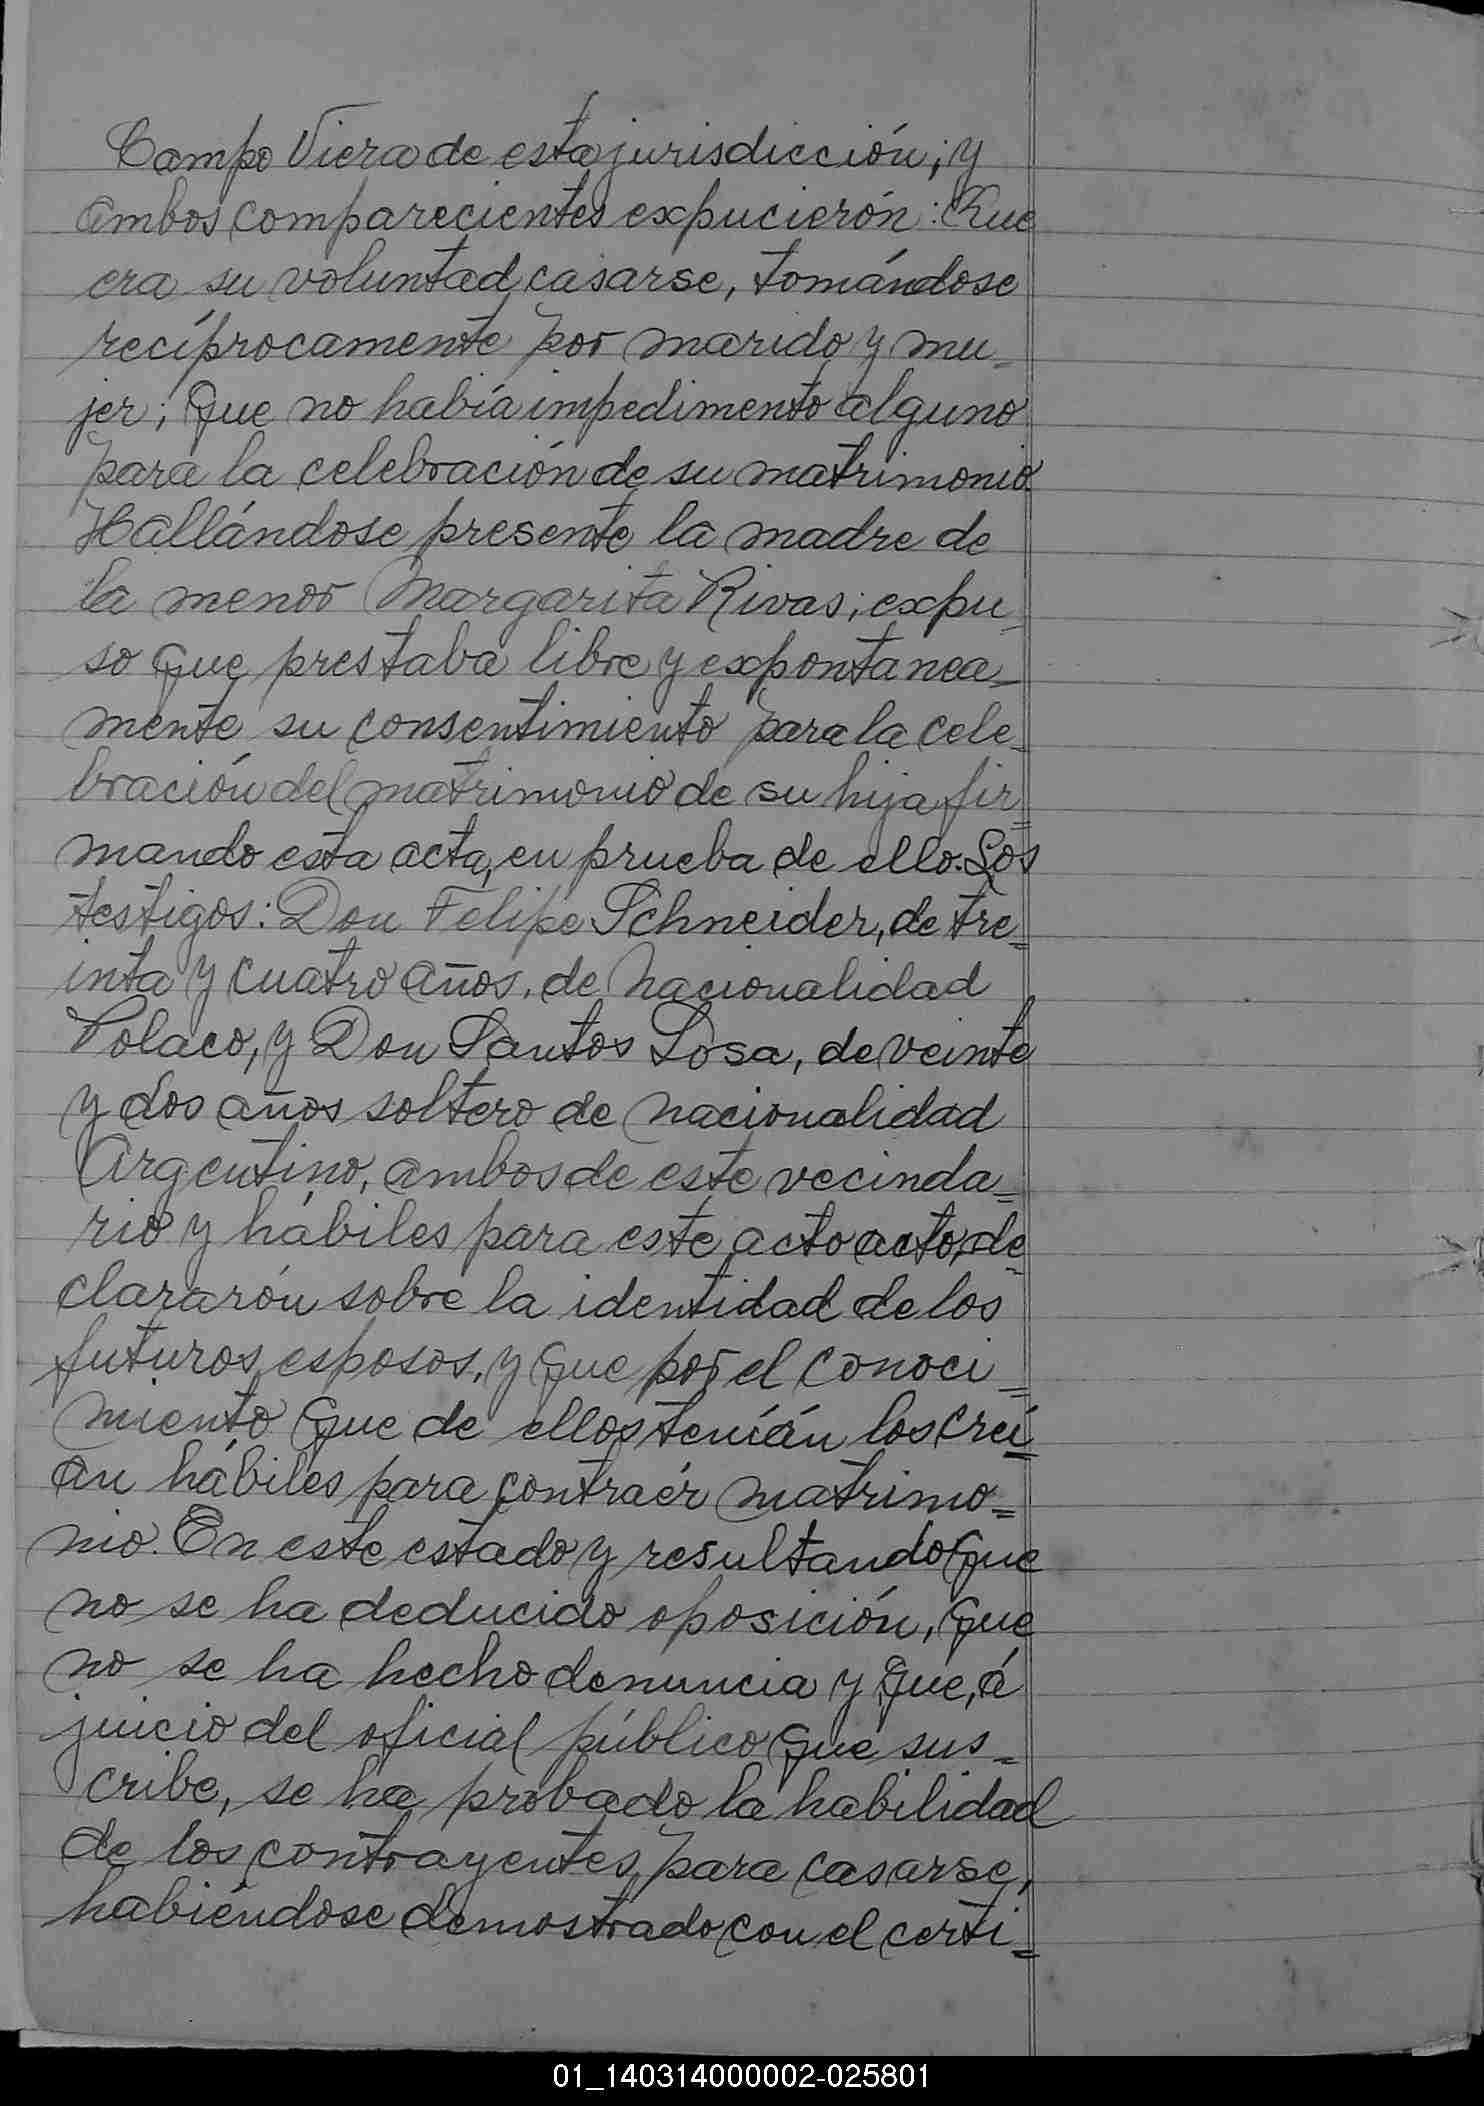 Campo Viera de esta jurisdicción; y
ambos comparecientes expucierón: Que
era su voluntad casarse, tomándose
recíprocamente por marido y mu_
jer; que no había impedimento alguno
para la celebración de su matrimonio.
Hallándose presente la madre de
la menor Margarita Rivas; expu_
so que prestaba libre y expontanea_
mente su consentimiento para la cele_
bración del matrimonio de su hija fir=
mando esta acta, en prueba de ello. Los
testigos: Don Felipe Schneider, de tre_
inta y cuatro años, de nacionalidad
Polaco, y Don Santos Sosa, de veinte
y dos años soltero de nacionalidad
Argentino, ambos de este vecinda=
rio y hábiles para este acto acto, de_
clararón sobre la identidad de los
futuros esposos, y que por el conoci=
miento que de ellos teníán los creí=
an hábiles para contraér matrimo=
nio. En este estado y resultando que
no se ha deducido oposición, que
no se ha hecho denuncia y que, á
juicio del oficial público que sus=
cribe, se ha probado la habilidad
de los contrayentes para casarse,
habiéndose demostrado con el certi=
01_140314000002-025801